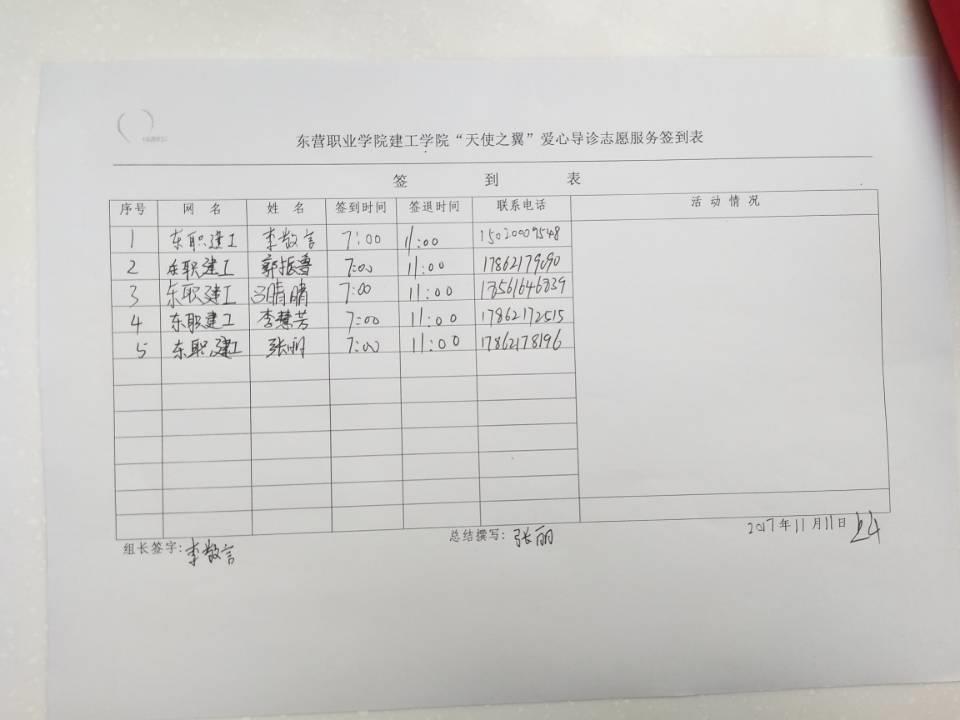 东营职业学院建工学院“天使之翼”爱心导诊志愿服务签到表
签 到 表
序号 网 名 姓 名 签到时间 签退时间 联系电话 活 动 情 况
1 东职建工 李数言 7:00 11:00 15020009548
2 东职建工 郭振鲁 7:00 11:00 17862179090
3 东职建工 晴晴 7:00 11:00
4 东职建工 李慧芳 7:00 11:00 17862172515
5 东职建工 张丽 7:00 11:00 17862178196
组长签字:李数言 总结撰写:张丽 2017年11月11日